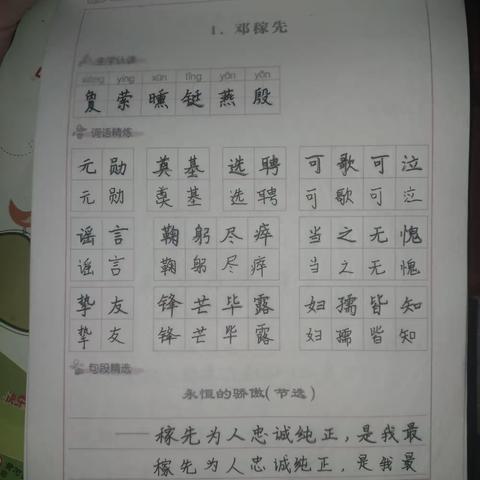 1. 邓稼先
生字认读
xiòng yíng xūn tǐng yān yīn
敻 萦 曛 铤 燕 殷
词语精炼
元勋 奠基 选聘 可歌可泣
元勋 奠基 选聘 可歌可泣
谣言 鞠躬尽瘁 当之无愧
谣言 鞠躬尽瘁 当之无愧
挚友 锋芒毕露 妇孺皆知
挚友 锋芒毕露 妇孺皆知
句段精选
永恒的骄傲(节选)
——稼先为人忠诚纯正，是我最
稼先为人忠诚纯正，是我最